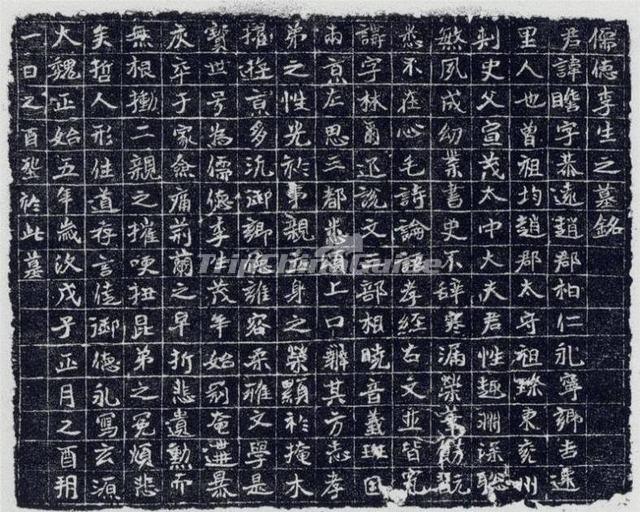 儒德李生之墓銘
君諱瞻字恭遠趙郡柏仁永寧鄉吉遷
里人也曾祖均趙郡太守祖璨東兗州
刺史父宣茂太中大夫君性趣淵深聰
敏夙成幼業書史不辭寒漏榮
悉不在心毛詩論語孝經古文並皆究
字林爾疋說文三部相曉音義班固
兩京左思三都悉頌上口辯其方志孝
弟之性光於事親身之榮顯於掩木
擢遊京多沉御鄉德容柔雅文學是
寶世号為儒德李生茂年始奄遘暴
疾卒于家僉痛荊蘭之早折悲遺勲而
無根慟二親之摧哽扭昆弟之冤煩悲
矣哲人形往道存言佳御德永寫玄源
大魏正始五年歲次戊子正月之酉朔
一日之酉塟於此墓
TripChinaGuide